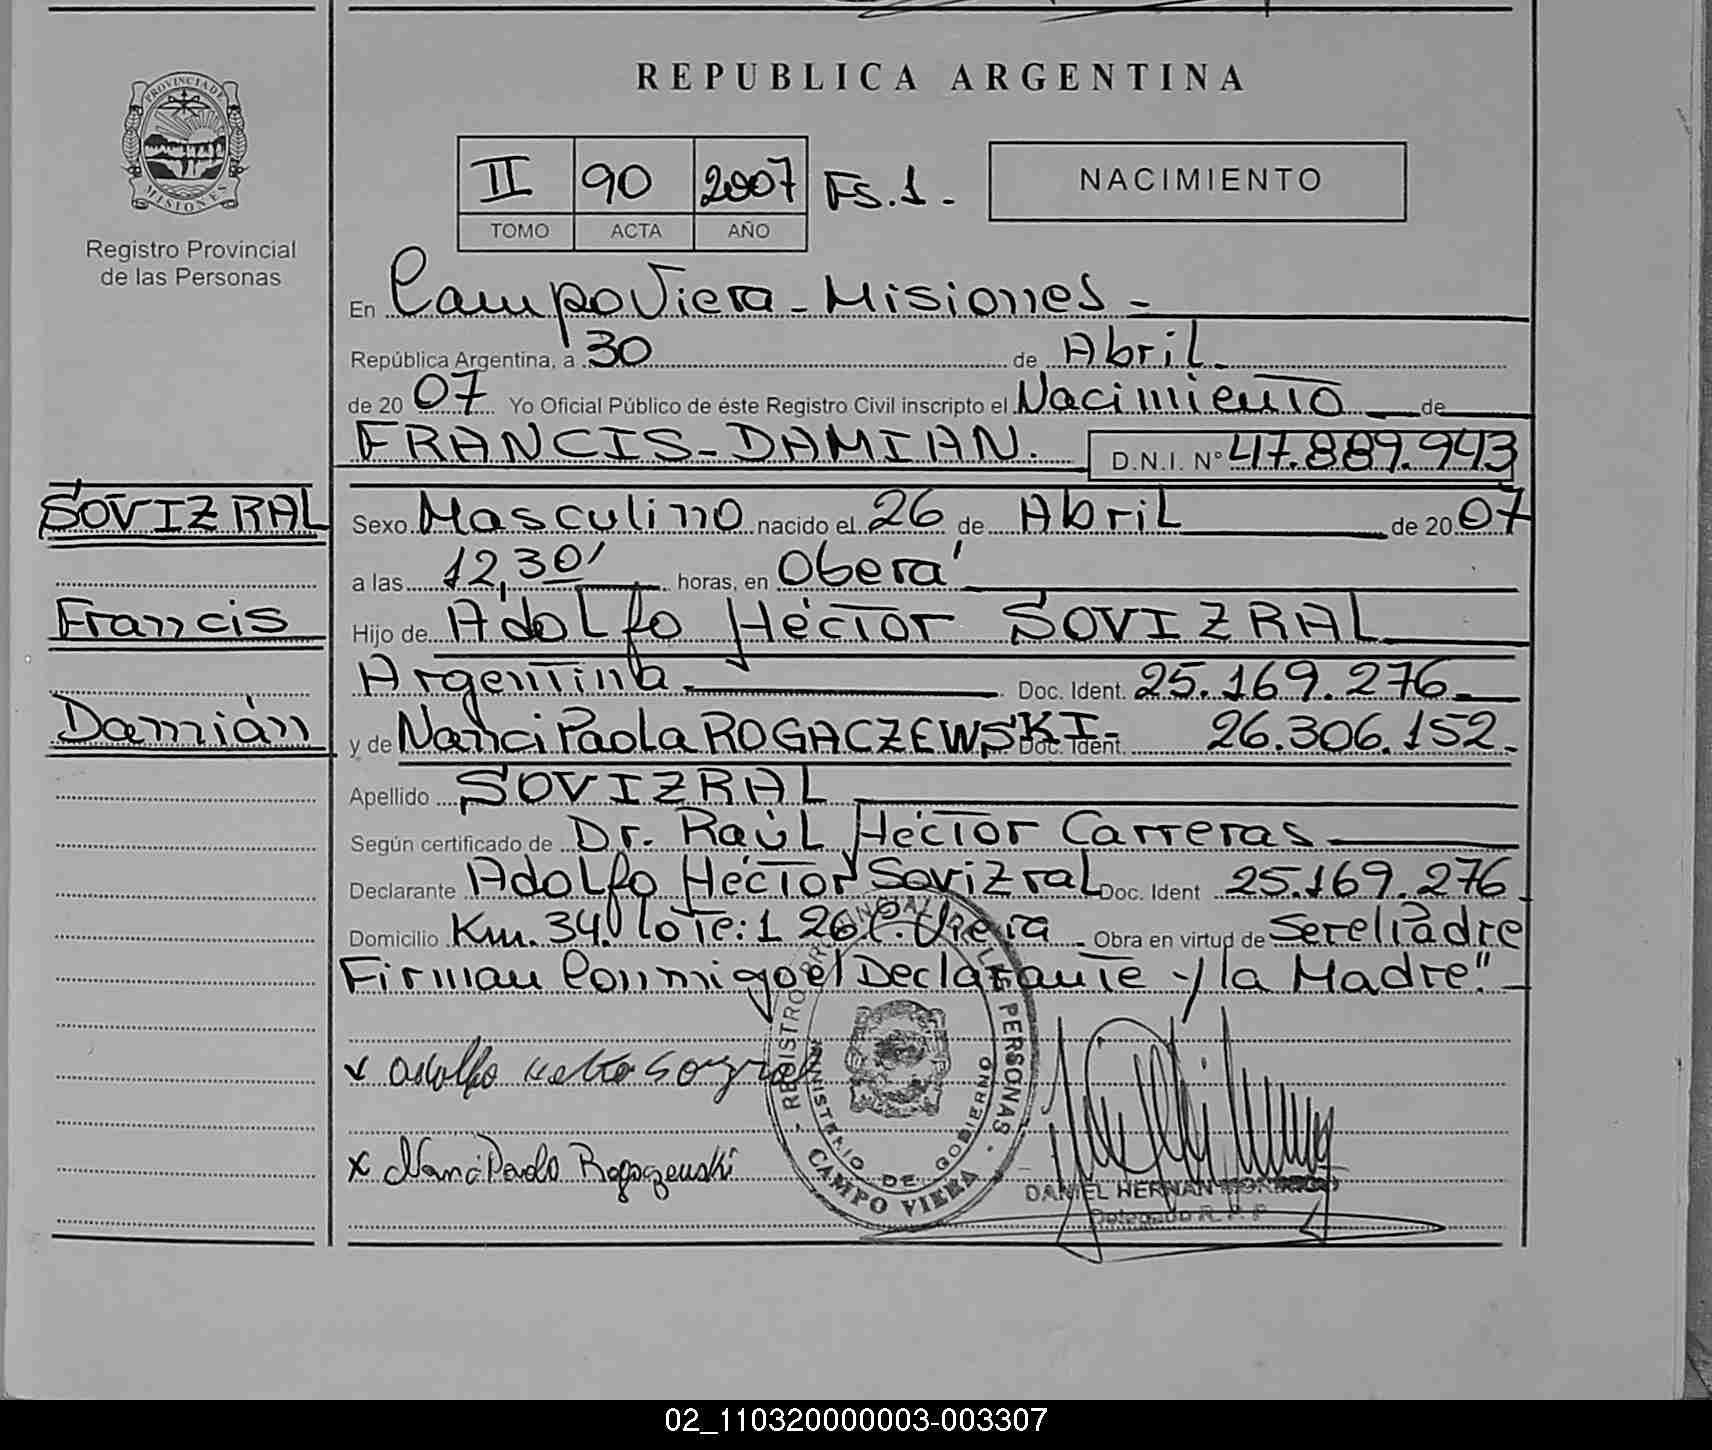 REPUBLICA ARGENTINA
PROVINCIA DE MISIONES
Registro Provincial
de las Personas
II 90 2007 Fs. 1.-
TOMO ACTA AÑO
NACIMIENTO
En Campo Viera - Misiones -
República Argentina, a 30 de Abril
de 20 07 Yo Oficial Público de éste Registro Civil inscripto el Nacimiento de
FRANCIS - DAMIAN. D.N.I. N° 47.889.943
SOVIZRAL
Francis
Damián
Sexo Masculino nacido el 26 de Abril de 20 07
a las 12,30' horas, en Oberá
Hijo de Adolfo Héctor SOVIZRAL
Argentina. Doc. Ident. 25.169.276
y de Nanci Paola ROGACZEWSKI- Doc. Ident. 26.306.152.
Apellido SOVIZRAL
Según certificado de Dr. Raúl Héctor Carreras
Declarante Adolfo Héctor Sovizral Doc. Ident 25.169.276
Domicilio Km. 34. lote: 126 C. Viera Obra en virtud de Ser el Padre
Firman Conmigo el Declarante y la Madre".
x Adolfo
x Nanci Paola Rogaczewski
REGISTRO PROVINCIAL DE LAS PERSONAS
MINISTERIO DE GOBIERNO
- CAMPO VIERA -
DANIEL HERNAN
Delegado R. P. P
02_110320000003-003307